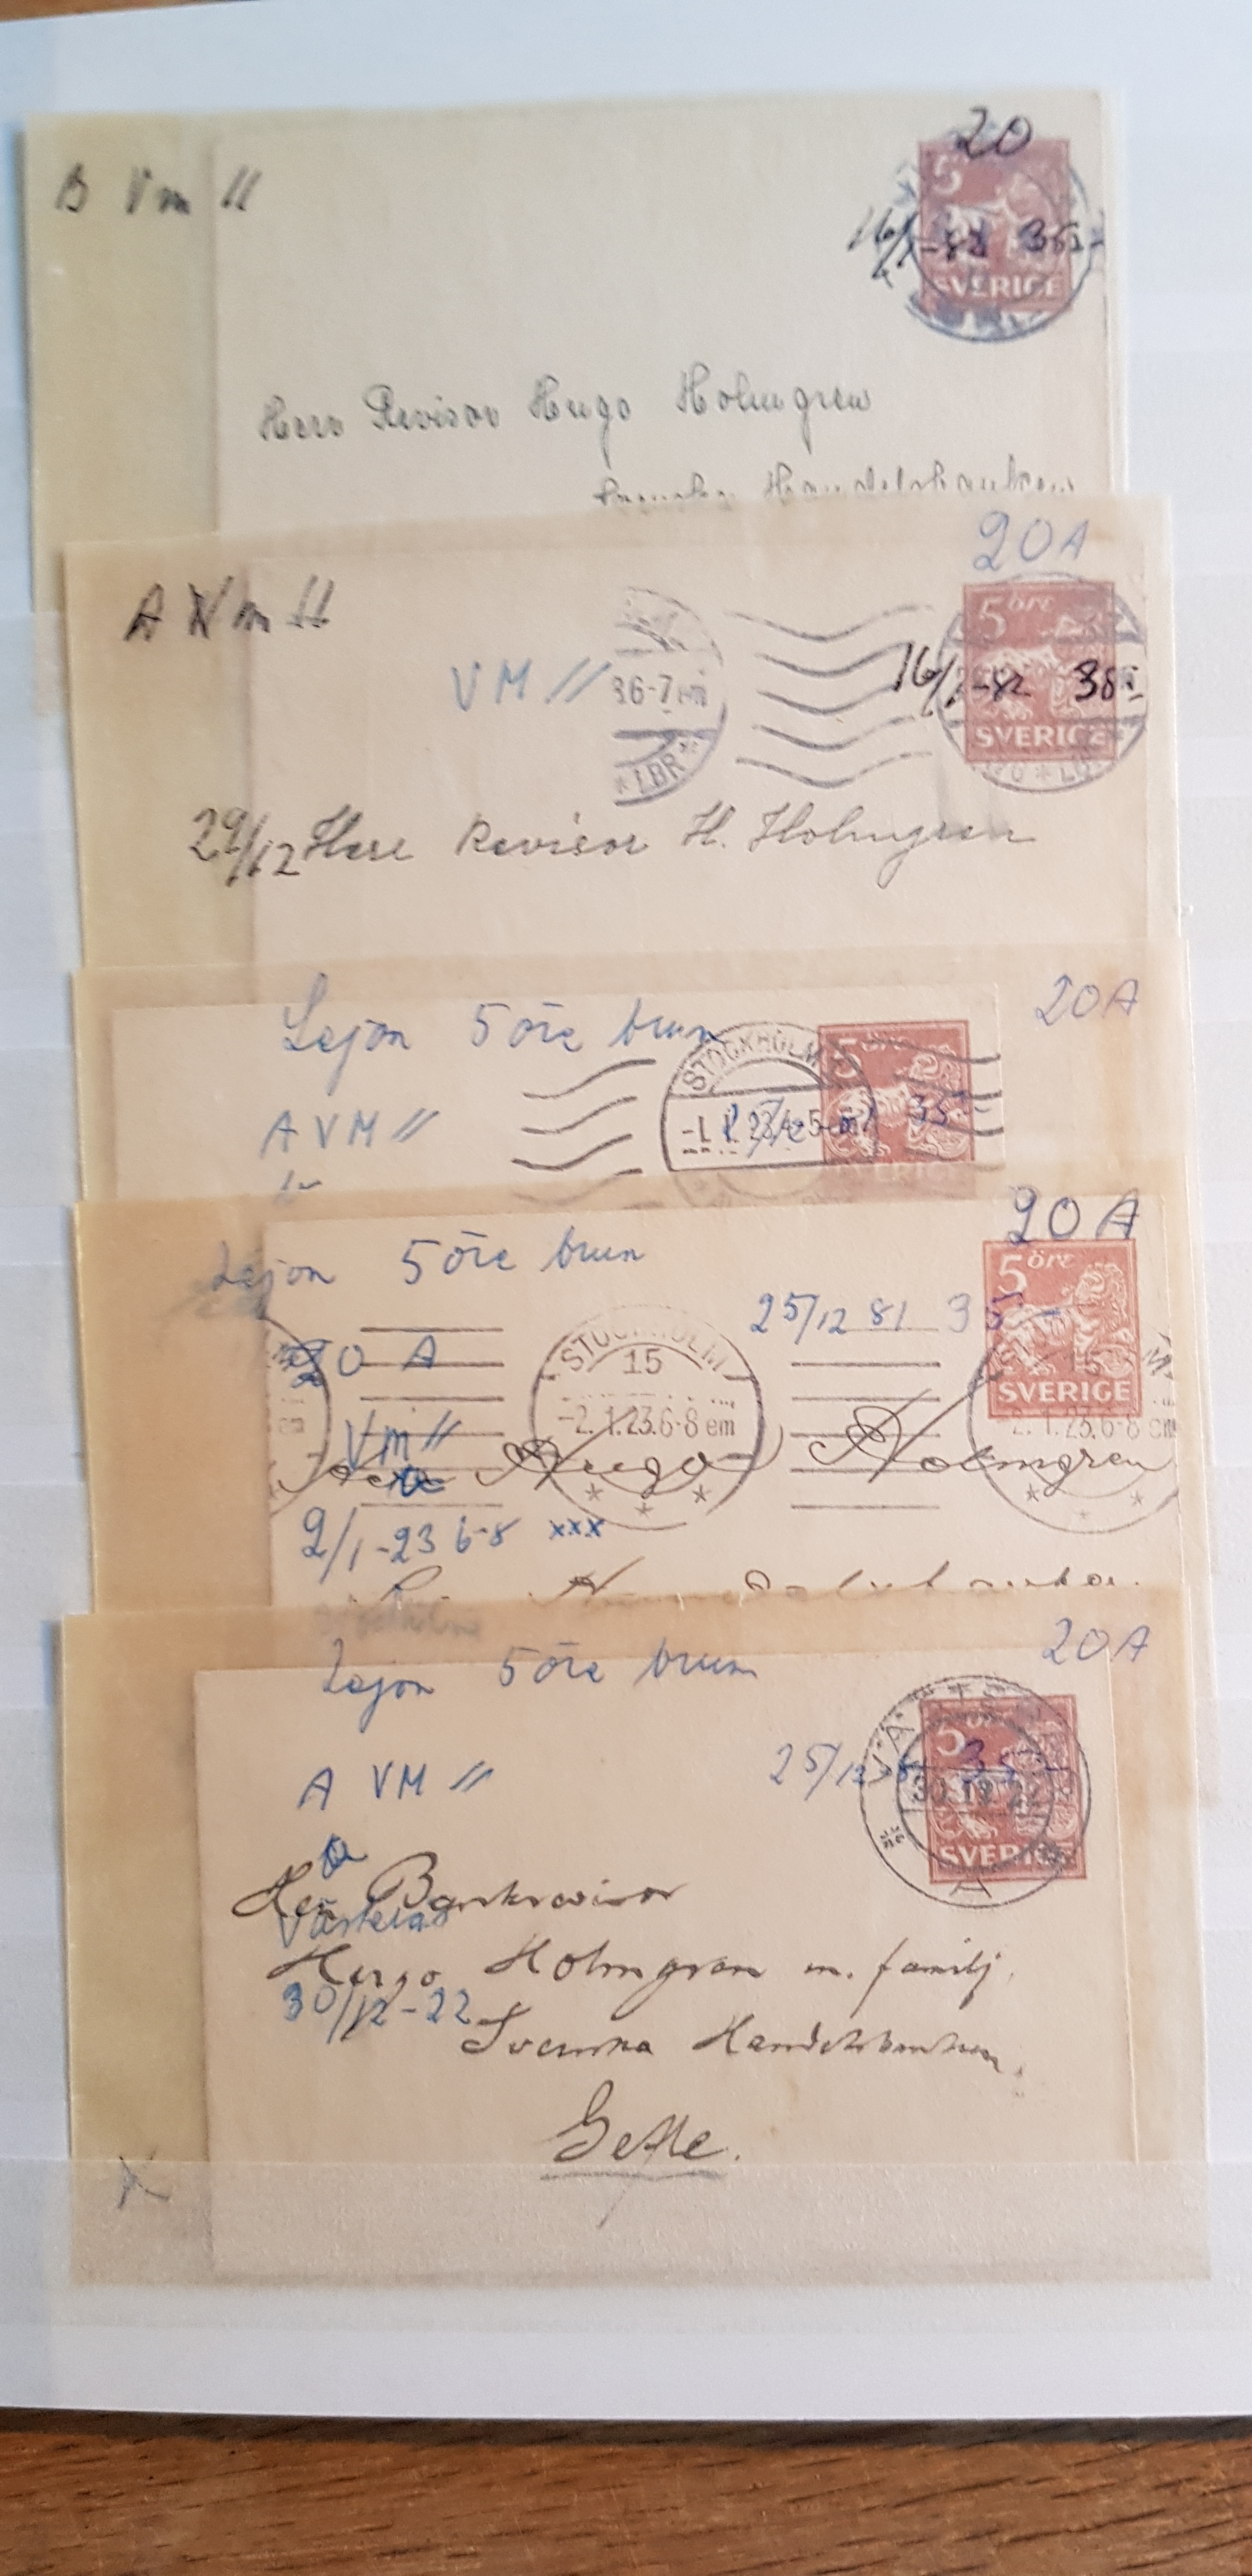 20
B Vm //
5
16/1-82 35:-
SVERIGE
Herr Revisor Hugo Holmgren
Svenska Handelsbanken
20A
A Vm //
5 öre
VM //
36-7 em
16/1-82 35:-
SVERIGE
* LBR *
29/12 Herr Revisor H. Holmgren
20A
Lejon 5 öre brun
STOCKHOLM
5 öre
A VM //
35:-
SVERIGE
20 A
Lejon 5 öre brun
5 öre
25/12 81 35:-
STOCKHOLM
15
20 A
SVERIGE
-2.1.23.6-8 em
-2.1.23.6-8 em
Vm //
Hugo Holmgren
* * *
2/1-23 6-8 xxx
20A
Lejon 5 öre brun
5 öre
25/12 81 35:-
A VM //
30.12.22
SVERIGE
Herr Bankrevisor
Västerås
Hugo Holmgren m. familj.
30/12-22
Svenska Handelsbanken.
Gefle.